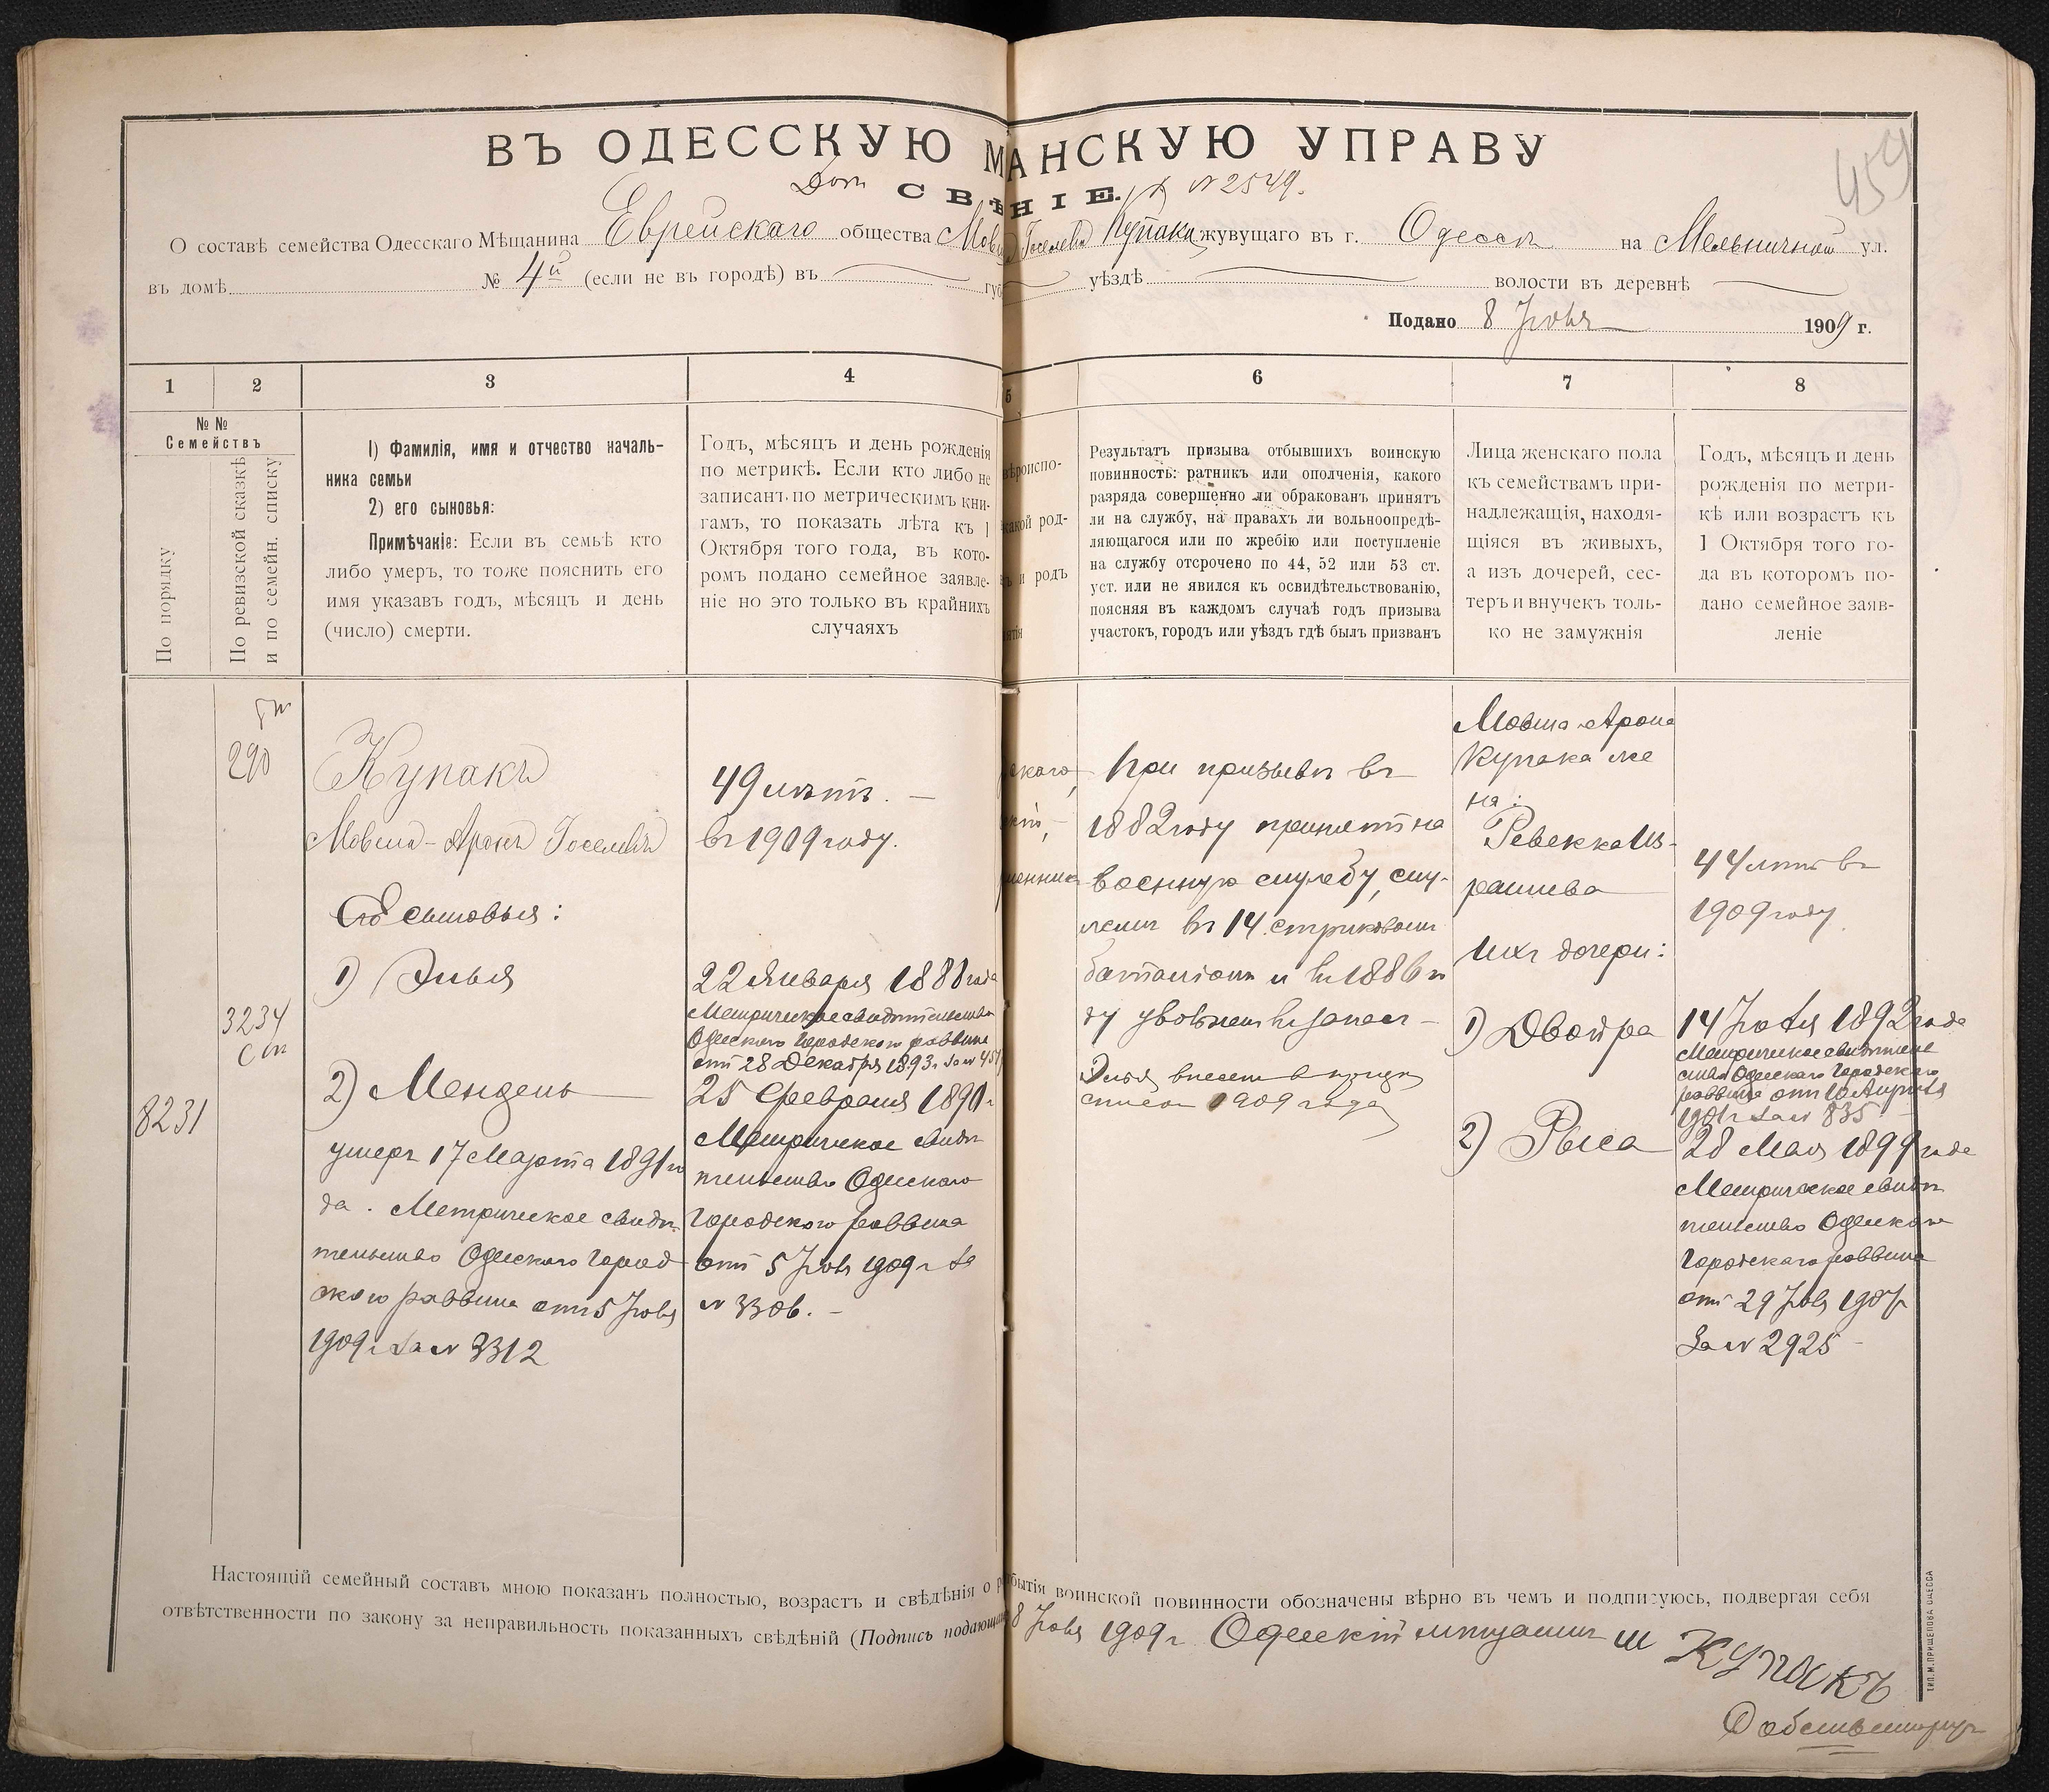 459
ВЪ ОДЕССКУЮ МАНСКУЮ УПРАВУ
СВѢНІЕ.
№ 2549.
О составѣ семейства Одесскаго Мѣщанина Еврейскаго общества Мов Іоселева Купака жувущаго въ г. Одессѣ на Мельничной ул.
въ домѣ № 4й (если не въ городѣ) въ губ уѣздѣ волости въ деревнѣ
Подано 8 Іюля 1909 г.
1 2 3 4 5 6 7 8
№ №
Семействъ
По порядку
По ревизской сказкѣ
и по семейн. списку
1) Фамилія, имя и отчество началь-
ника семьи
2) его сыновья:
Примѣчаніе: Если въ семьѣ кто
либо умеръ, то тоже пояснить его
имя указавъ годъ, мѣсяцъ и день
(число) смерти.
Годъ, мѣсяцъ и день рожденія
по метрикѣ. Если кто либо не
записанъ по метрическимъ кни-
гамъ, то показать лѣта къ 1
Октября того года, въ кото-
ромъ подано семейное заявле-
ніе но это только въ крайнихъ
случаяхъ
вѣроиспо-
какой род-
и родъ
ятія
Результатъ призыва отбывшихъ воинскую
повинность: ратникъ или ополченія, какого
разряда совершенно ли обракованъ принятъ
ли на службу, на правахъ ли вольноопредѣ-
ляющагося или по жребію или поступленіе
на службу отсрочено по 44, 52 или 53 ст.
уст. или не явился къ освидѣтельствованію,
поясняя въ каждомъ случаѣ годъ призыва
участокъ, городъ или уѣздъ гдѣ былъ призванъ
Лица женскаго пола
къ семействамъ при-
надлежащія, находя-
щіяся въ живыхъ,
а изъ дочерей, сес-
теръ и внучекъ толь-
ко не замужнія
Годъ, мѣсяцъ и день
рожденія по метри-
кѣ или возрастъ къ
1 Октября того го-
да въ которомъ по-
дано семейное заяв-
леніе
8231
290
3234
Купакъ
Мовша-Аронъ Іоселевъ
Его сыновья:
1) Элья
2) Мендель
умеръ 17 Марта 1891 го
да. Метрическое свидѣ-
тельство Одесскаго Город
скаго раввина отъ 5 Іюля
1909 г за № 3312
49 лѣтъ. —
въ 1909 году.
22 Января 1888 года
Метрическое свидѣтельство
Одесскаго Городского раввина
отъ 28 Декабря 1893 г за №
25 Февраля 1890 г
Метрическое свидѣ
тельство Одесскаго
Городского раввина
отъ 5 Іюля 1909 г за
№ 3306. —
скаго,
При призывѣ въ
1882 году принятъ на
военную службу, слу-
жилъ въ 14 стрѣлковомъ
баталіонѣ и въ 1886 го
ду уволенъ въ запасъ —
Элья внесенъ в
списокъ 1909 года
Мовша-Арона
Купака же
на:
Ревекка Из-
раилева
Ихъ дочери:
1) Двойра
2) Рыся
44 лѣтъ въ
1909 году
14 Іюля 1892 года
Метрическое свидѣтель
ство Одесскаго Городского
раввина отъ 10 Августа
1901 г за № 835
28 Мая 1899 года
Метрическое свидѣ
тельство Одесскаго
Городского раввина
отъ 29 Іюля 1907 г
За № 2925 —
Настоящій семейный составъ мною показанъ полностью, возрастъ и свѣдѣнія о бытія воинской повинности обозначены вѣрно въ чемъ и подписуюсь, подвергая себя
отвѣтственности по закону за неправильность показанныхъ свѣдѣній (Подпись подающ 8 Іюля 1909 г Одесскій мѣщанинъ Ш Купакъ
ТИП. М. ПРИЩЕПОВА ОДЕССА